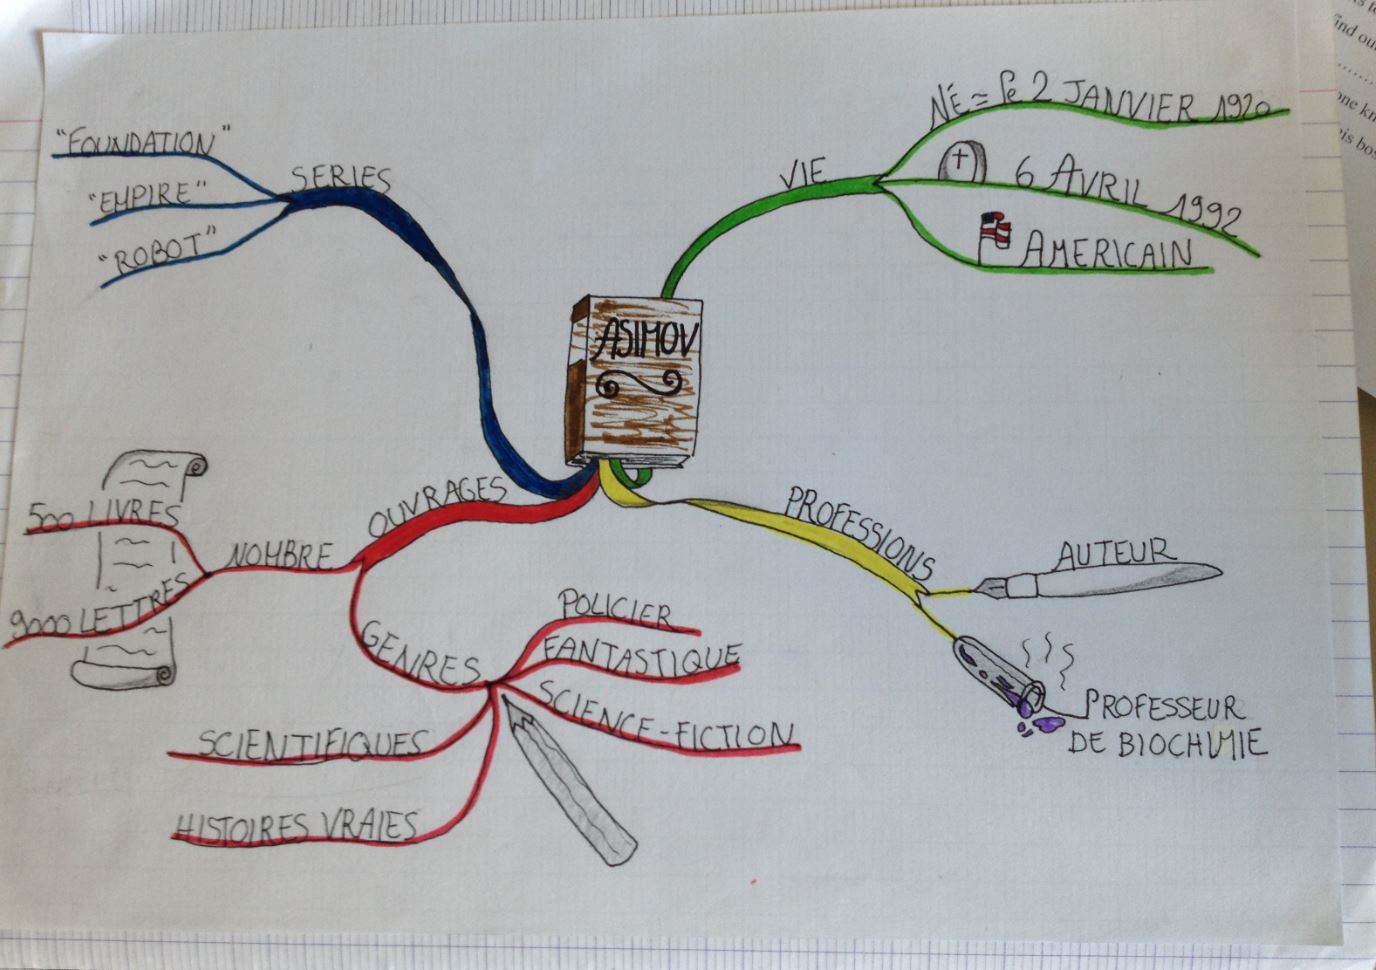 ASIMOV
SERIES
"FOUNDATION"
"EMPIRE"
"ROBOT"
VIE
NÉ = le 2 JANVIER 1920
6 AVRIL 1992
AMERICAIN
OUVRAGES
NOMBRE
500 LIVRES
9000 LETTRES
GENRES
POLICIER
FANTASTIQUE
SCIENCE-FICTION
SCIENTIFIQUES
HISTOIRES VRAIES
PROFESSIONS
AUTEUR
PROFESSEUR
DE BIOCHIMIE
find out